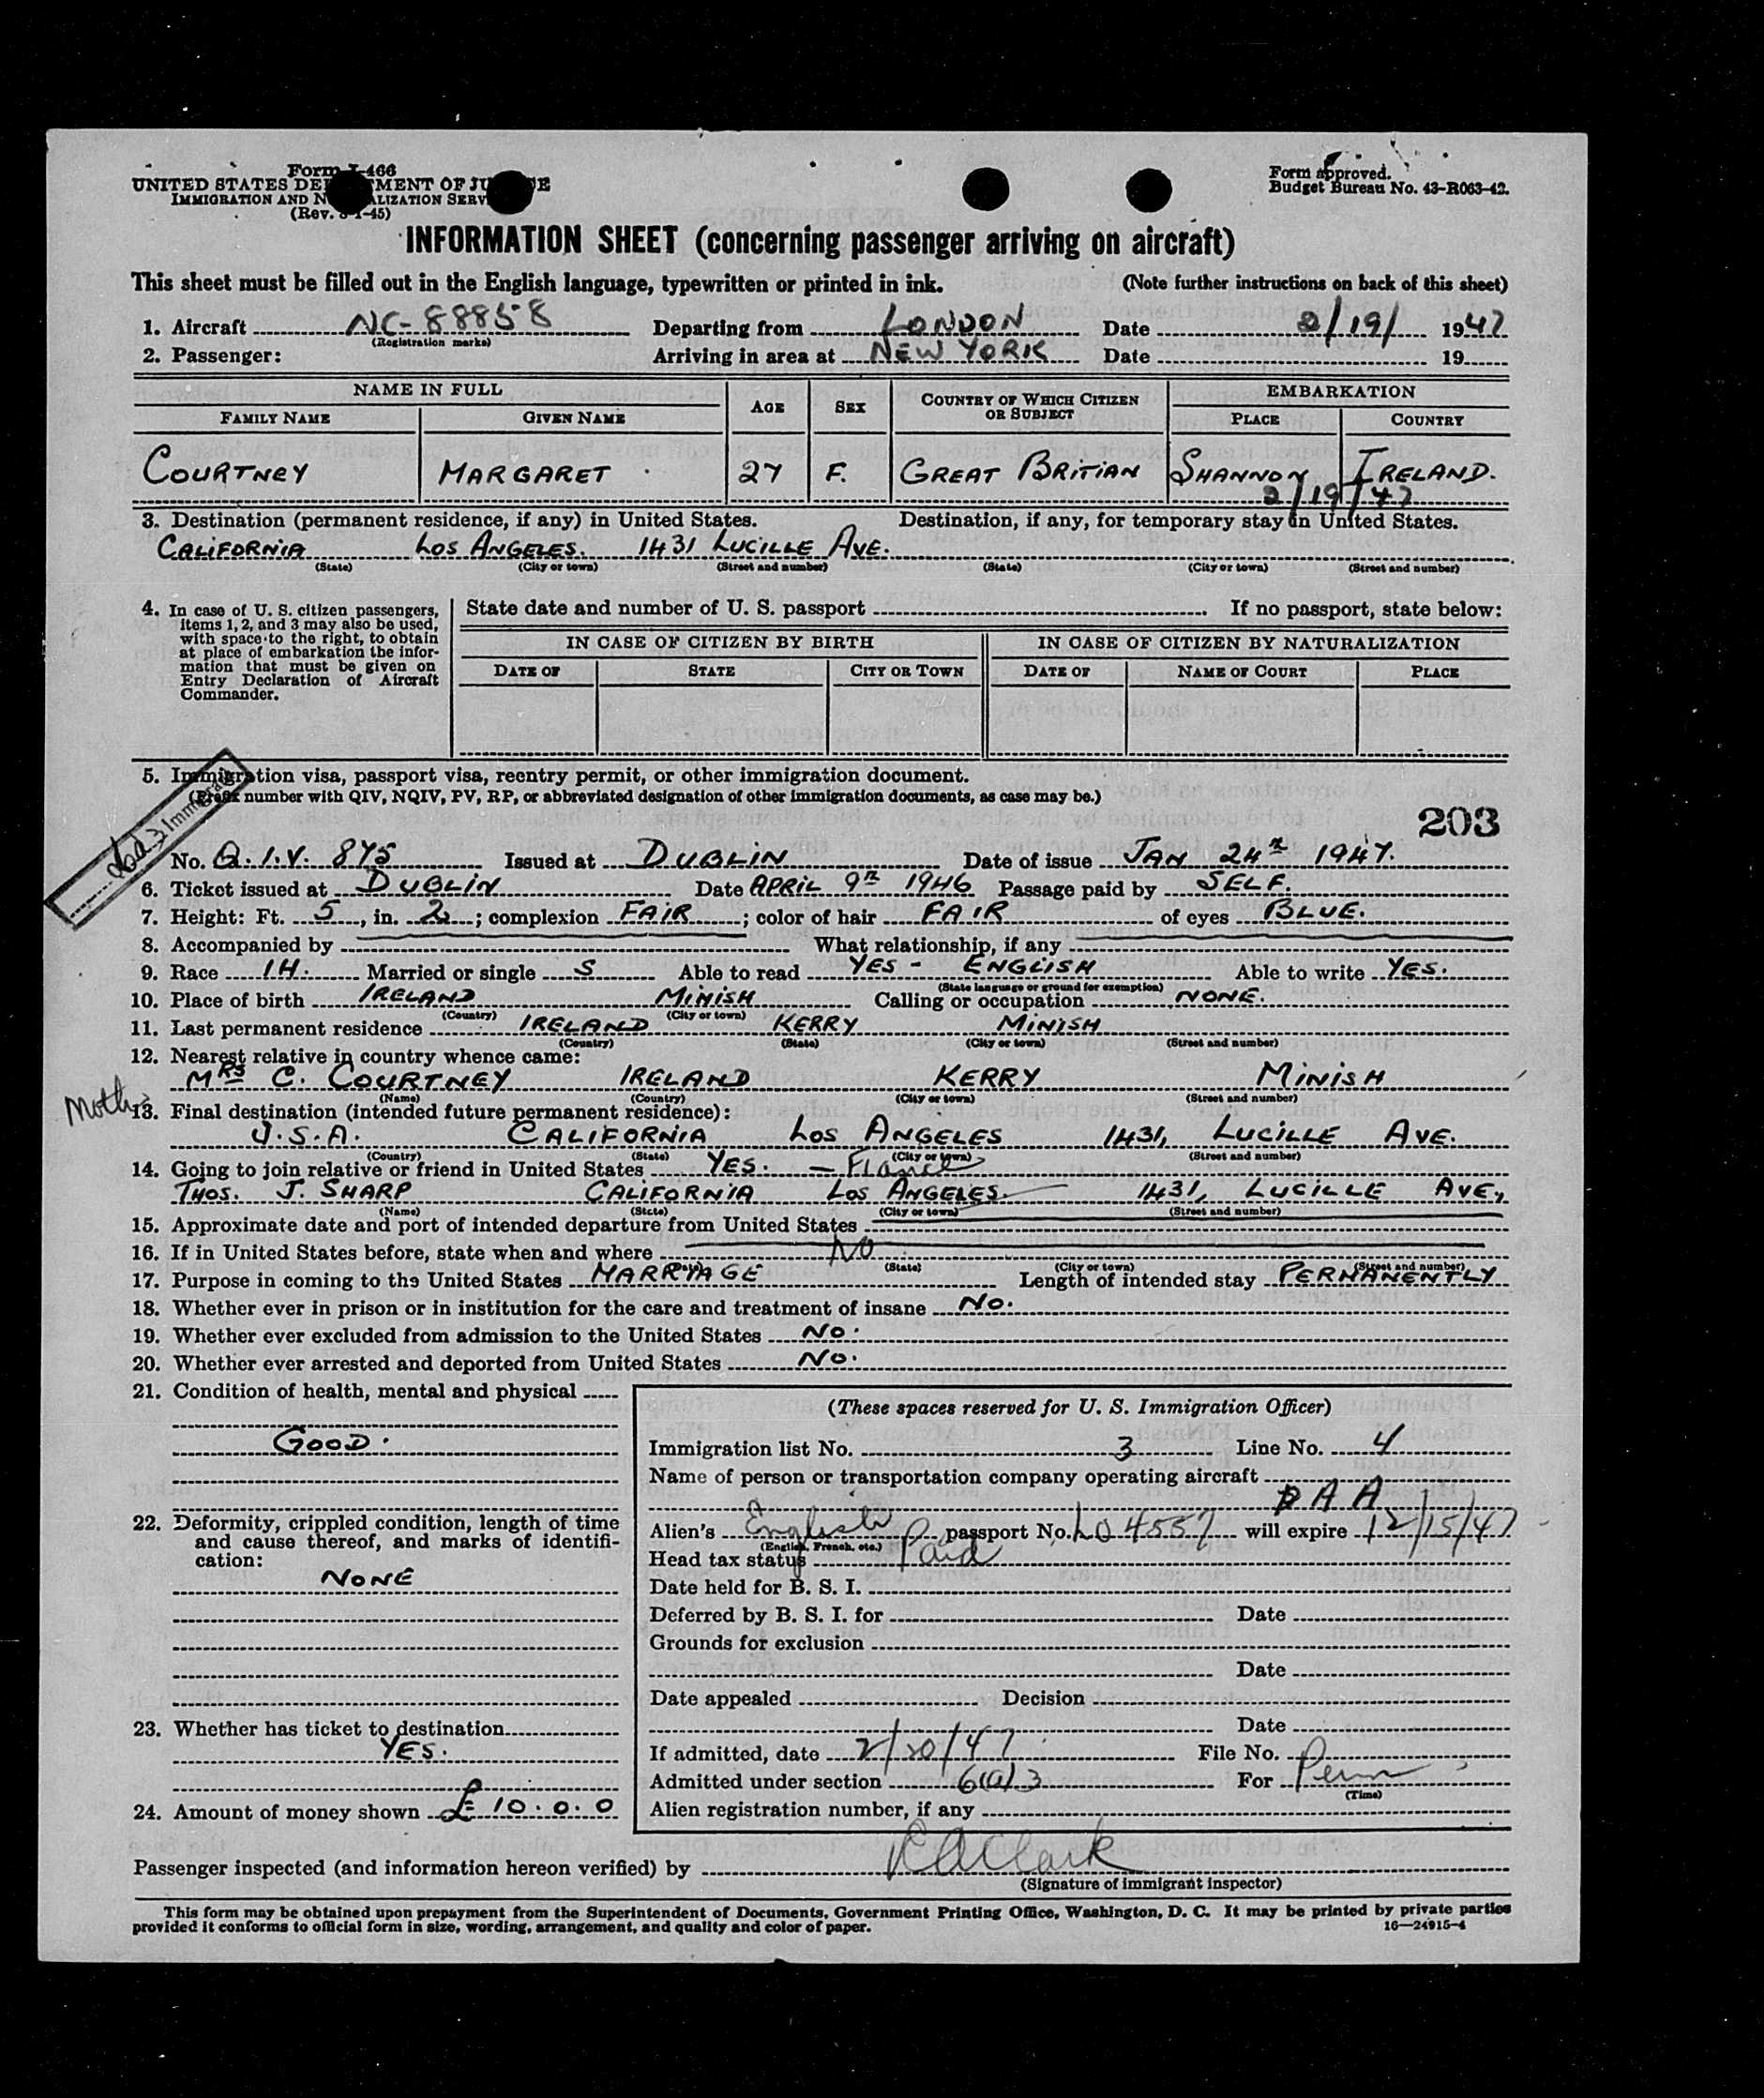 Form I-466
UNITED STATES DEPARTMENT OF JUSTICE
IMMIGRATION AND NATURALIZATION SERVICE
(Rev. 3-1-45)
Form approved.
Budget Bureau No. 43-R063-42.
INFORMATION SHEET (concerning passenger arriving on aircraft)
This sheet must be filled out in the English language, typewritten or printed in ink. (Note further instructions on back of this sheet)
1. Aircraft NC-88858 Departing from LONDON Date 2/19/ 1947
(Registration marks)
2. Passenger: Arriving in area at NEW YORK Date 19
NAME IN FULL AGE SEX COUNTRY OF WHICH CITIZEN OR SUBJECT EMBARKATION
FAMILY NAME GIVEN NAME PLACE COUNTRY
COURTNEY MARGARET 27 F. GREAT BRITIAN SHANNON IRELAND.
2/19/47
3. Destination (permanent residence, if any) in United States. Destination, if any, for temporary stay in United States.
CALIFORNIA LOS ANGELES. 1431 LUCILLE AVE.
(State) (City or town) (Street and number) (State) (City or town) (Street and number)
4. In case of U. S. citizen passengers, items 1, 2, and 3 may also be used, with space to the right, to obtain at place of embarkation the information that must be given on Entry Declaration of Aircraft Commander.
State date and number of U. S. passport If no passport, state below:
IN CASE OF CITIZEN BY BIRTH IN CASE OF CITIZEN BY NATURALIZATION
DATE OF STATE CITY OR TOWN DATE OF NAME OF COURT PLACE
5. Immigration visa, passport visa, reentry permit, or other immigration document.
(Prefix number with QIV, NQIV, PV, RP, or abbreviated designation of other immigration documents, as case may be.)
203
No. Q.I.V. 875 Issued at DUBLIN Date of issue JAN 24th 1947.
6. Ticket issued at DUBLIN Date APRIL 9th 1946 Passage paid by SELF.
7. Height: Ft. 5, in. 2; complexion FAIR; color of hair FAIR of eyes BLUE.
8. Accompanied by What relationship, if any
9. Race IH. Married or single S Able to read YES - ENGLISH Able to write YES.
(State language or ground for exemption)
10. Place of birth IRELAND MINISH Calling or occupation NONE.
(Country) (City or town)
11. Last permanent residence IRELAND KERRY MINISH
(Country) (State) (City or town) (Street and number)
12. Nearest relative in country whence came:
MRS C. COURTNEY IRELAND KERRY MINISH
(Name) (Country) (City or town) (Street and number)
13. Final destination (intended future permanent residence):
U.S.A. CALIFORNIA LOS ANGELES 1431, LUCILLE AVE.
(Country) (State) (City or town) (Street and number)
14. Going to join relative or friend in United States YES. - Fiance
THOS. J. SHARP CALIFORNIA LOS ANGELES. 1431, LUCILLE AVE,
(Name) (State) (City or town) (Street and number)
15. Approximate date and port of intended departure from United States
16. If in United States before, state when and where NO
(State) (City or town) (Street and number)
17. Purpose in coming to the United States MARRIAGE Length of intended stay PERMANENTLY
18. Whether ever in prison or in institution for the care and treatment of insane NO.
19. Whether ever excluded from admission to the United States NO.
20. Whether ever arrested and deported from United States NO.
21. Condition of health, mental and physical
GOOD.
22. Deformity, crippled condition, length of time and cause thereof, and marks of identification:
NONE
23. Whether has ticket to destination
YES.
24. Amount of money shown £10.0.0
(These spaces reserved for U. S. Immigration Officer)
Immigration list No. 3 Line No. 4
Name of person or transportation company operating aircraft
PAA
Alien's English passport No. L04557 will expire 12/15/47
(English, French, etc.)
Head tax status Paid
Date held for B. S. I.
Deferred by B. S. I. for Date
Grounds for exclusion
Date
Date appealed Decision
Date
If admitted, date 2/20/47 File No.
Admitted under section 6(a)3 For Perm
(Time)
Alien registration number, if any
Passenger inspected (and information hereon verified) by Clark
(Signature of immigrant inspector)
This form may be obtained upon prepayment from the Superintendent of Documents, Government Printing Office, Washington, D. C. It may be printed by private parties
provided it conforms to official form in size, wording, arrangement, and quality and color of paper. 16—24915-4